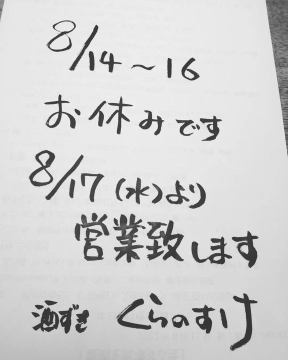 8/14～16
お休みです
8/17(水)より
営業致します
酒ずき くらのすけ